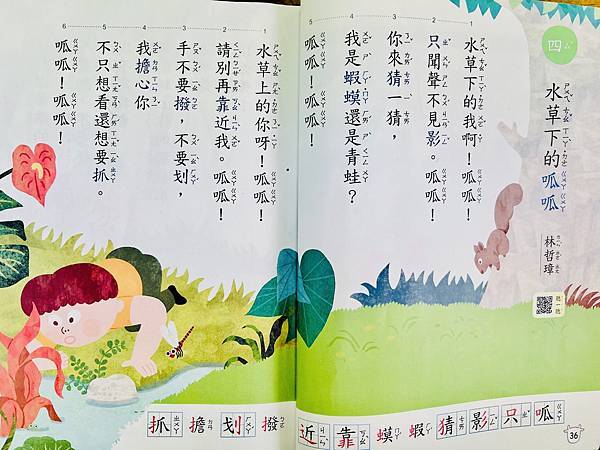 四
水草下的呱呱
林哲璋
水草下的我啊！呱呱！
只聞聲不見影。呱呱！
你來猜一猜，
我是蝦蟆還是青蛙？
呱呱！呱呱！
水草上的你呀！呱呱！
請別再靠近我。呱呱！
手不要撥，不要划，
我擔心你
不只想看還想要抓。
呱呱！呱呱！
呱 只 影 猜 蝦 蟆 靠 近
撥 划 擔 抓
36